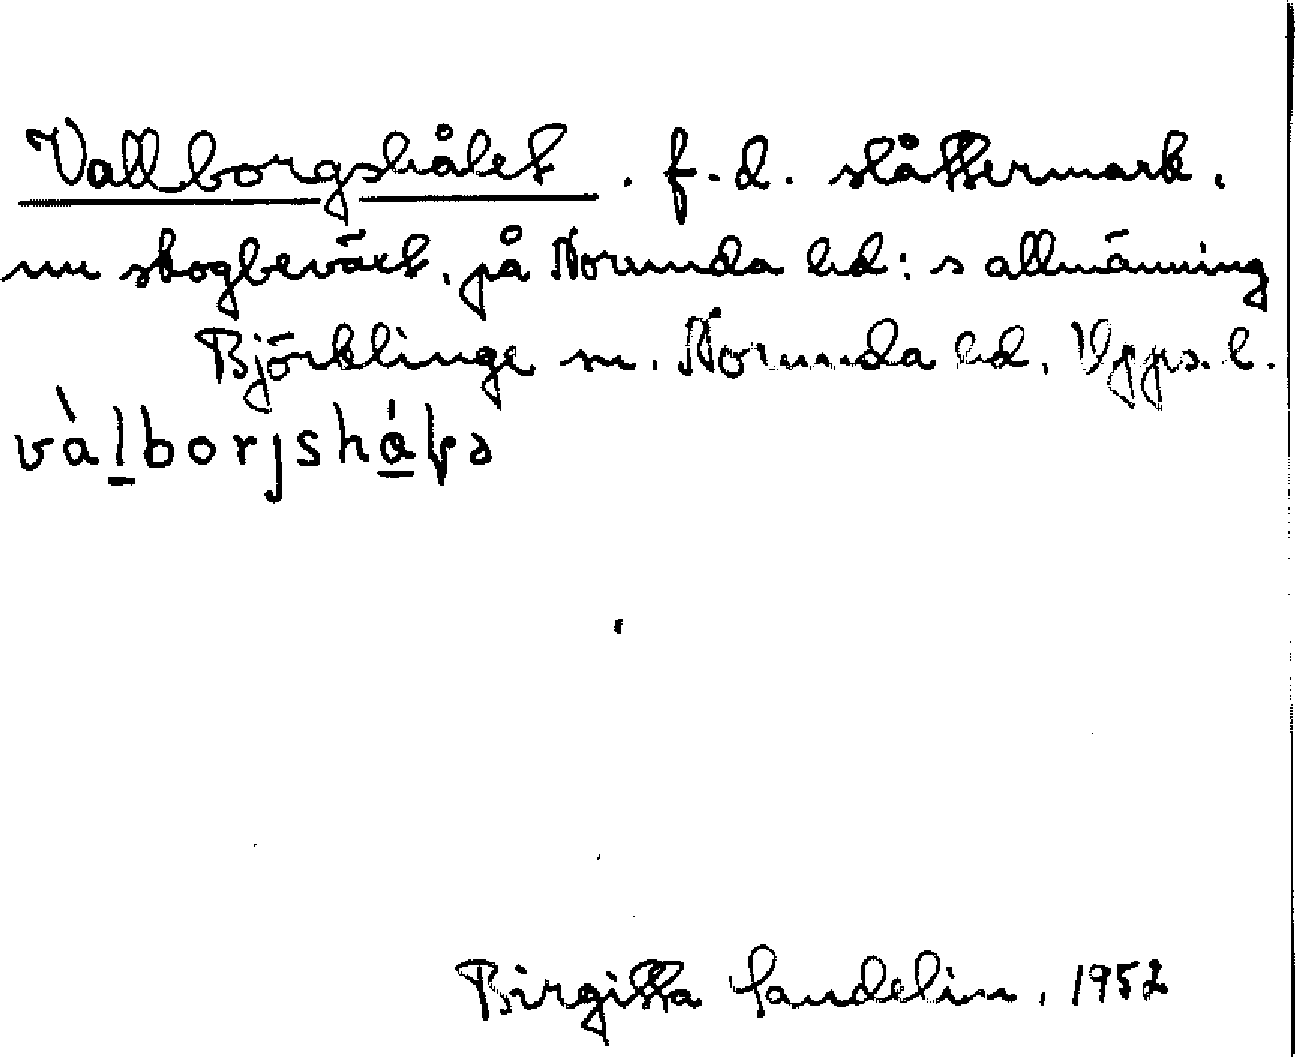 Vallborgshålet. f.d. slåttermark.
nu skogbeväxt, på Norunda hd:s allmänning
Björklinge sn. Norunda hd. Upps. l.
Birgitta Sandelin, 1952